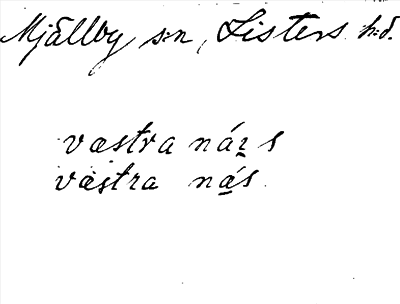 Mjällby s:n, Listers h:d.
vastra náꝛ s
vastra nás